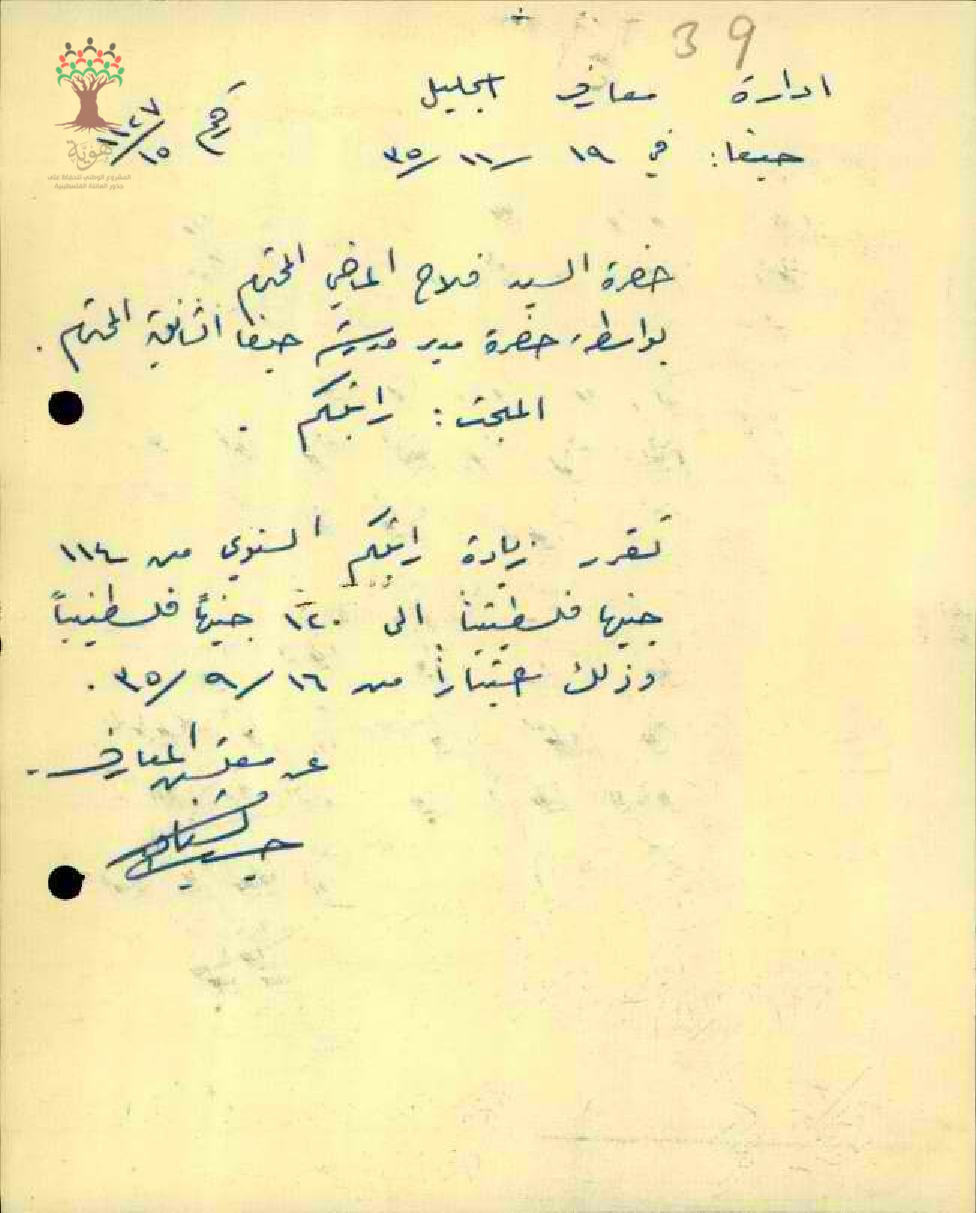 39
ادارة معارف الجليل
رقم ١١٢٧/١٥
حيفا: في ١٩/١١/٣٥
هوية
المشروع الوطني للحفاظ على
جذور العائلة الفلسطينية
حضرة السيد فلاح الماضي المحترم
بواسطة حضرة مدير مدرسة حيفا الثانوية المحترم.
المبحث: راتبكم.
تقرر زيادة راتبكم السنوي من ١١٤
جنيها فلسطينياً الى ١٢٠ جنيهاً فلسطينياً
وذلك اعتباراً من ١٦/٩/٣٥.
عن مفتش المعارف.